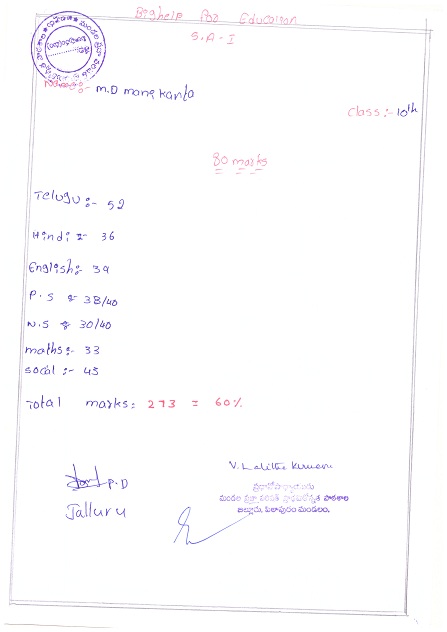 Bighelp For Education
S.A-I
Name:- M.D Mani kanta
Class:- 10th
80 marks
Telugu:- 52
Hindi:- 36
English:- 39
P.S :- 38/40
N.S :- 30/40
maths:- 33
socal :- 45
Total marks: 273 = 60%
P.D
Jalluru
V. Lalitha Kumari
ప్రధానోపాధ్యాయురాలు
మండల ప్రజా పరిషత్ ప్రాథమికోన్నత పాఠశాల
జల్లూరు, పిఠాపురం మండలం.